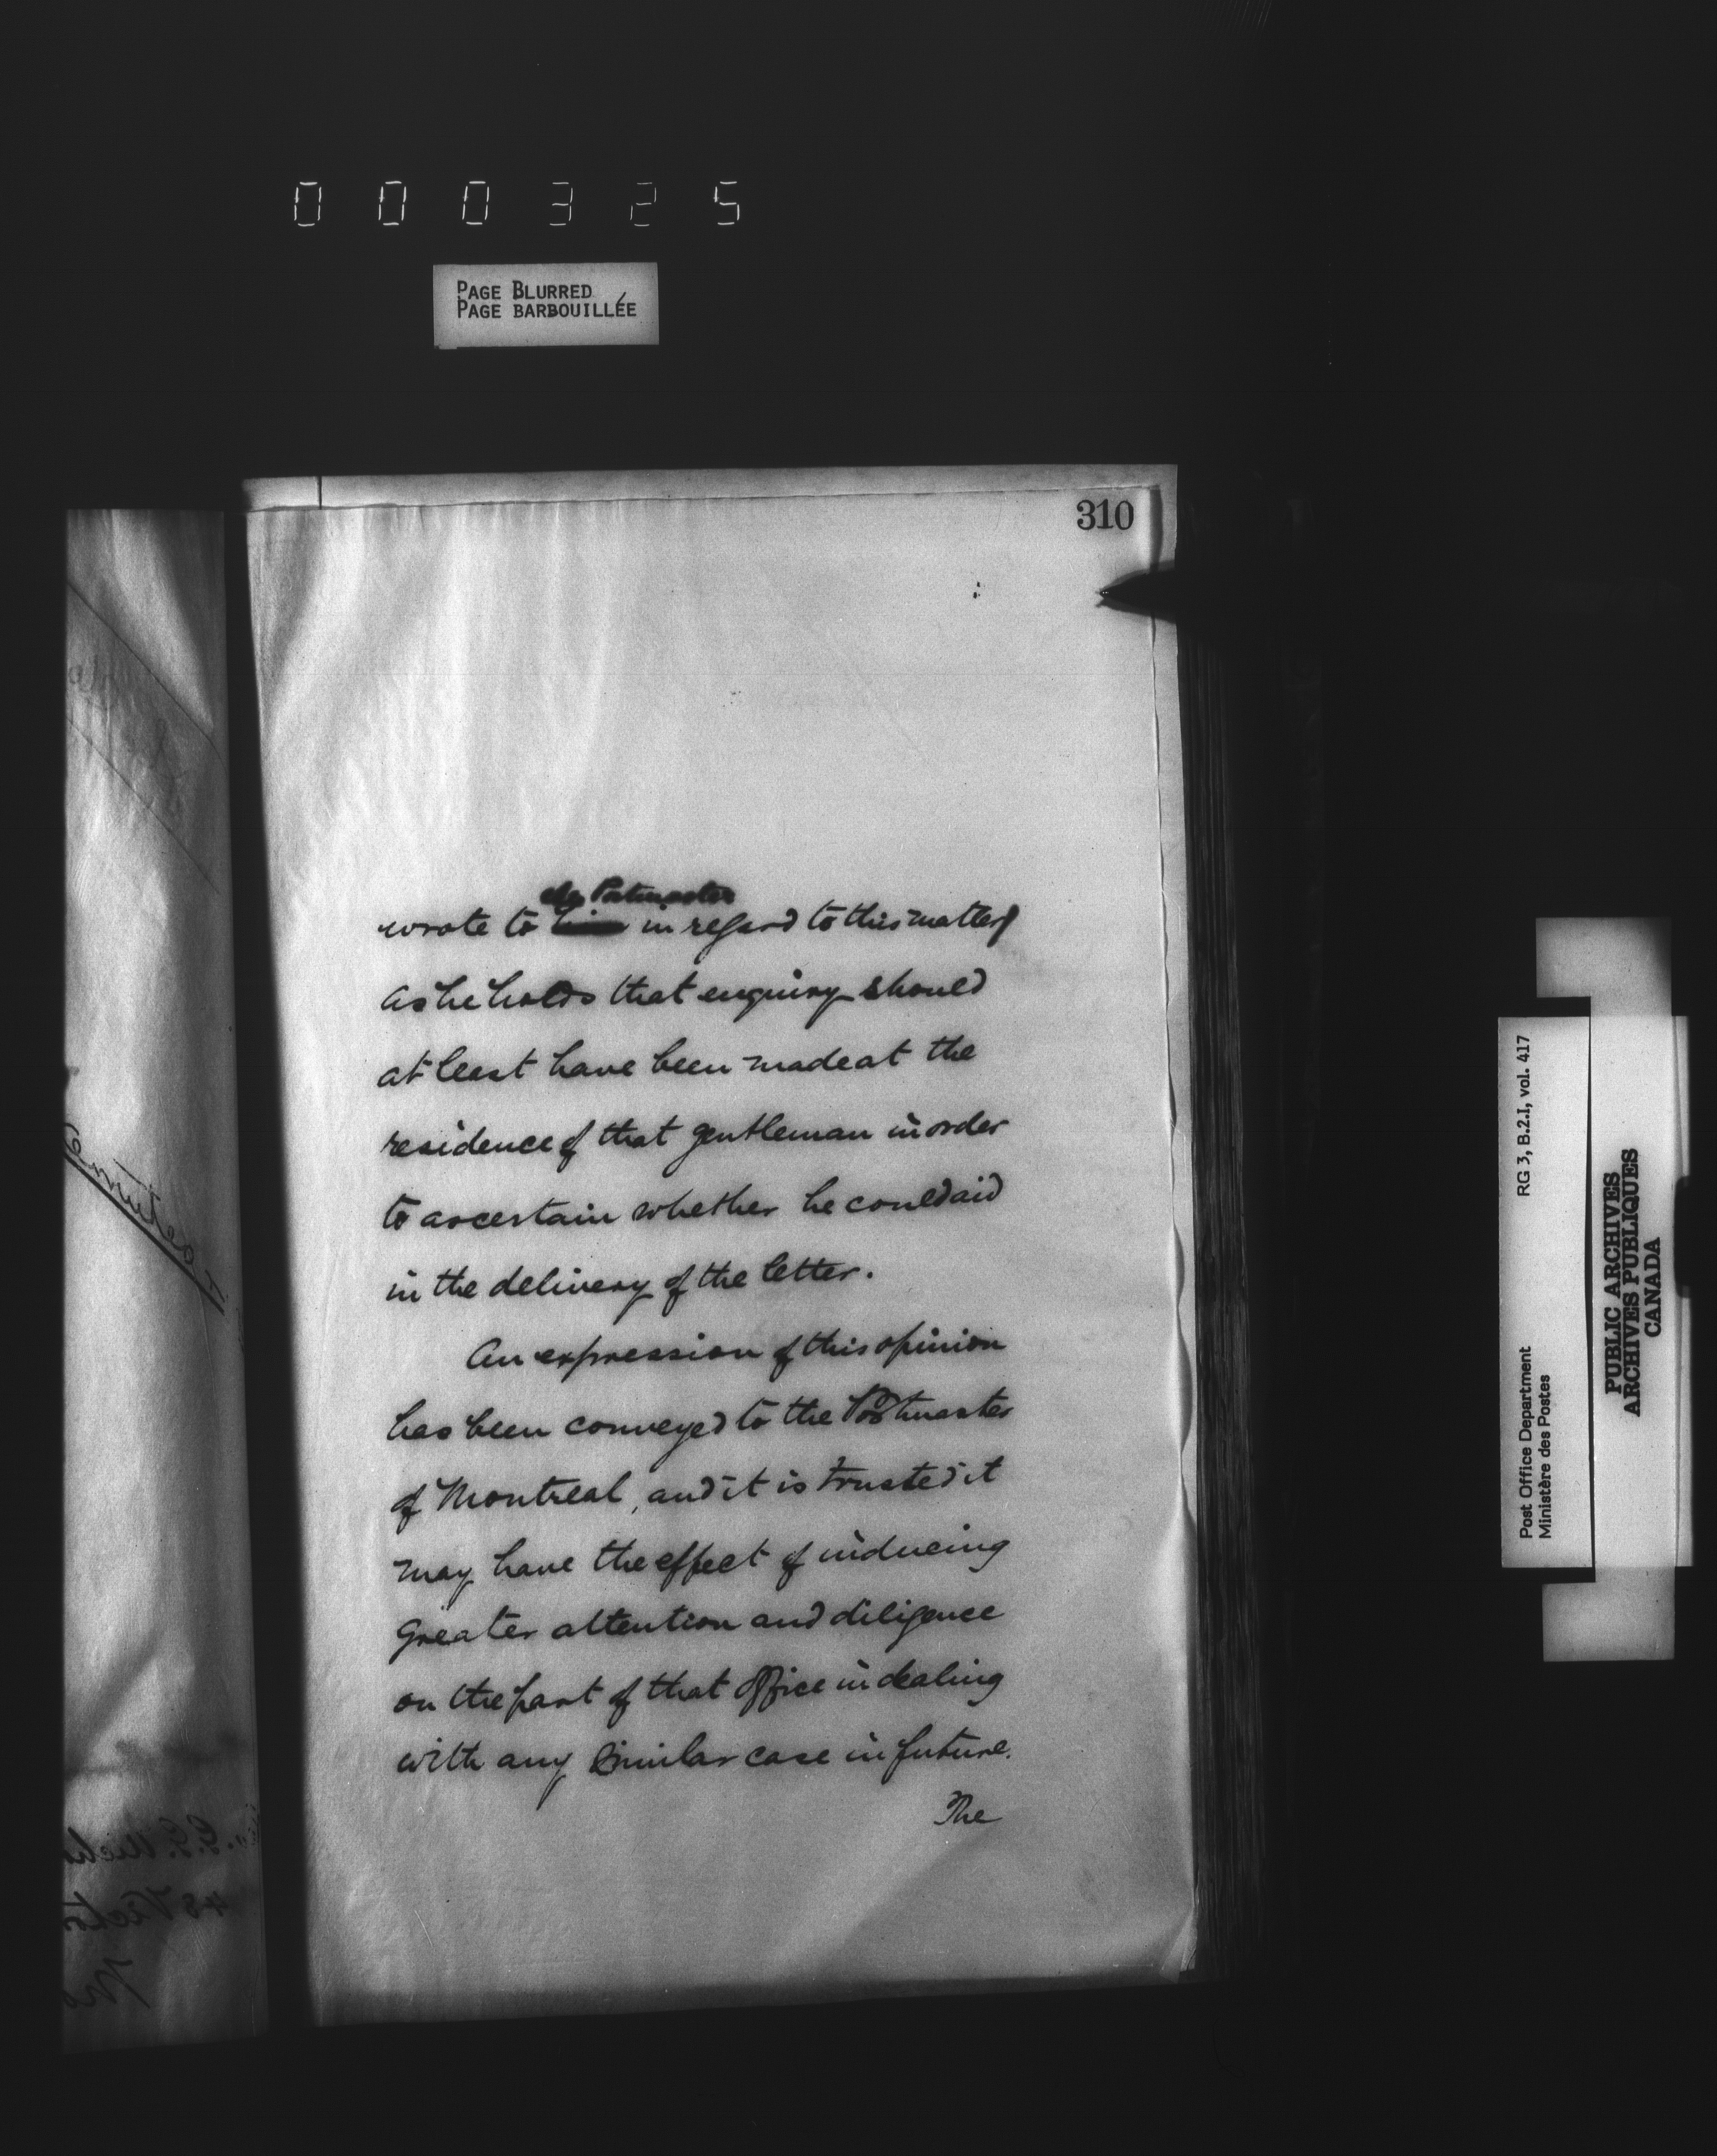 000325
PAGE BLURRED
PAGE BARBOUILLÉE
310
the Postmaster
wrote to him in regard to this matter
as he holds that enquiry should
at least have been made at the
residence of that gentleman in order
to ascertain whether he could aid
in the delivery of the letter.
An expression of this opinion
has been conveyed to the Postmaster
of Montreal, and it is trusted it
may have the effect of inducing
greater attention and diligence
on the part of that office in dealing
with any similar case in future.
The
RG 3, B.2.I, vol. 417
Post Office Department
Ministère des Postes
PUBLIC ARCHIVES
ARCHIVES PUBLIQUES
CANADA